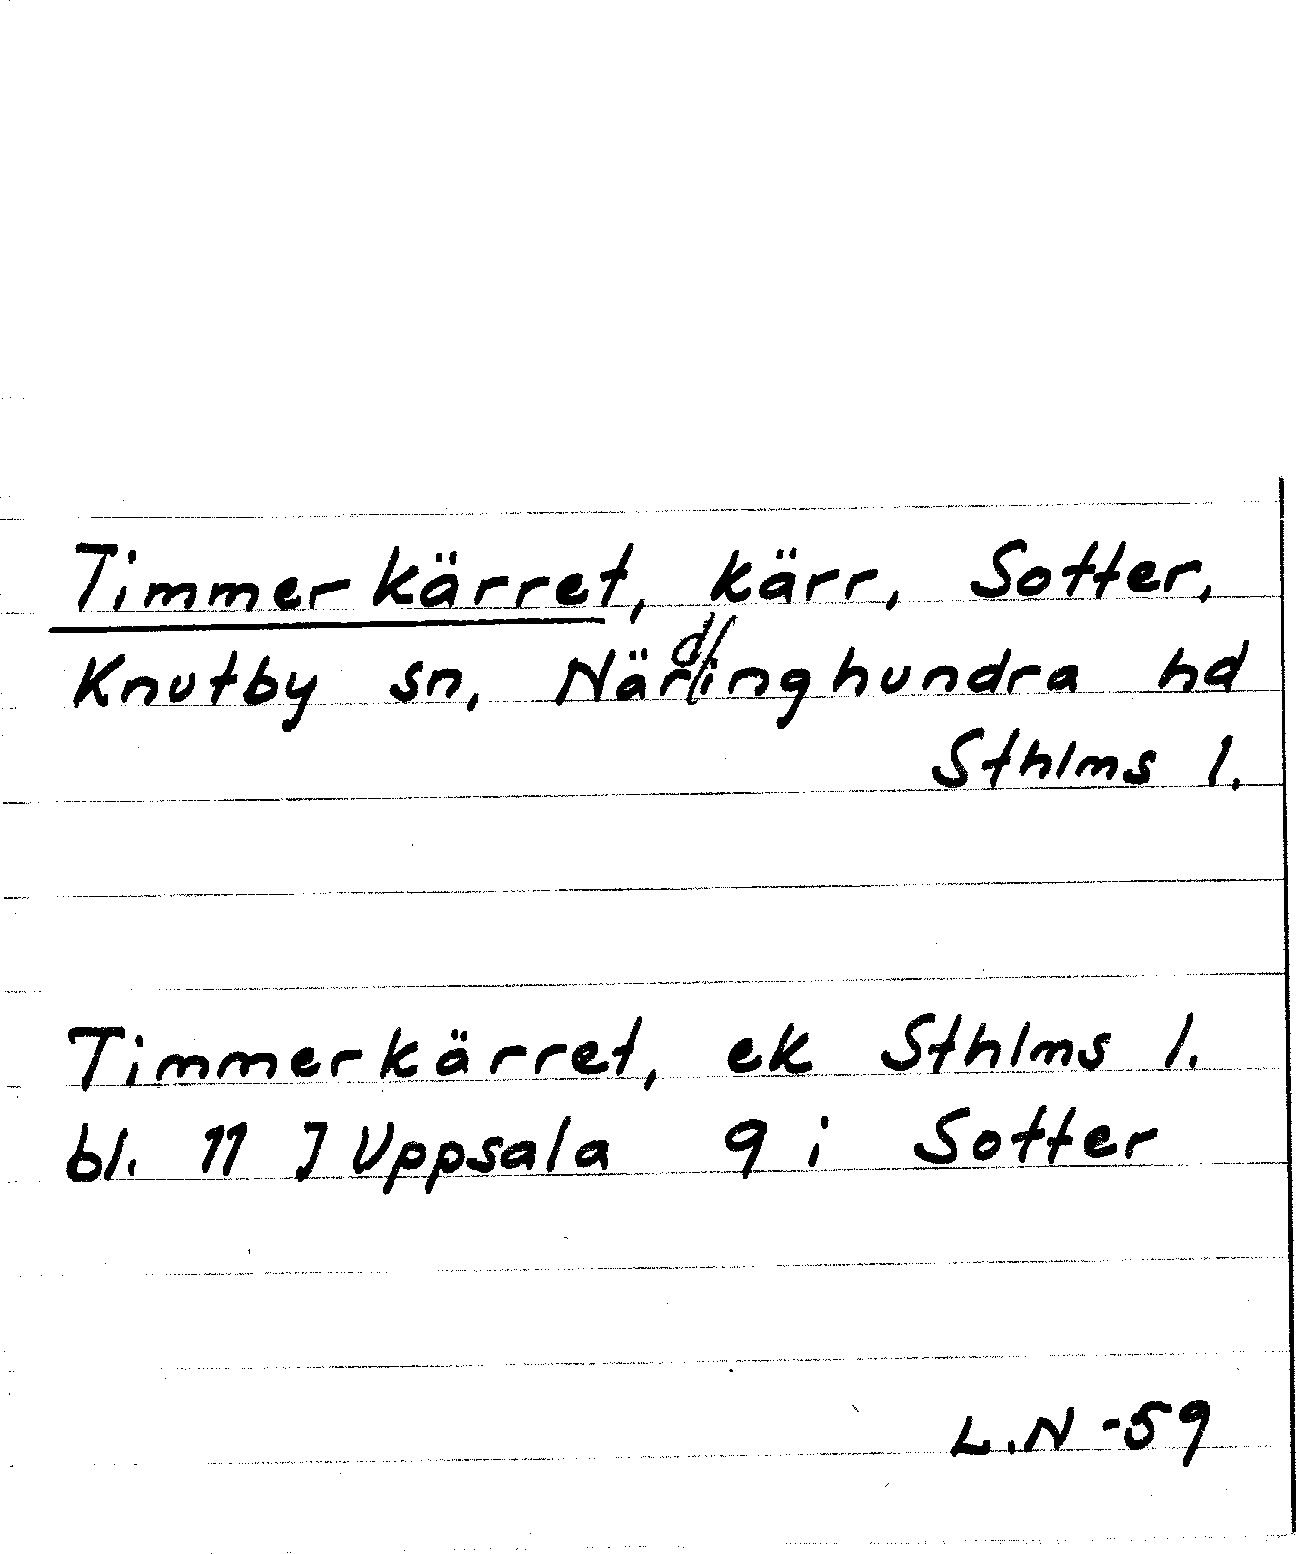 Timmerkärret, kärr, Sotter,
Knutby sn, Närdinghundra hd
Sthlms l.
Timmerkärret, ek Sthlms l.
bl. 11 J Uppsala 9 i Sotter
L.N -59